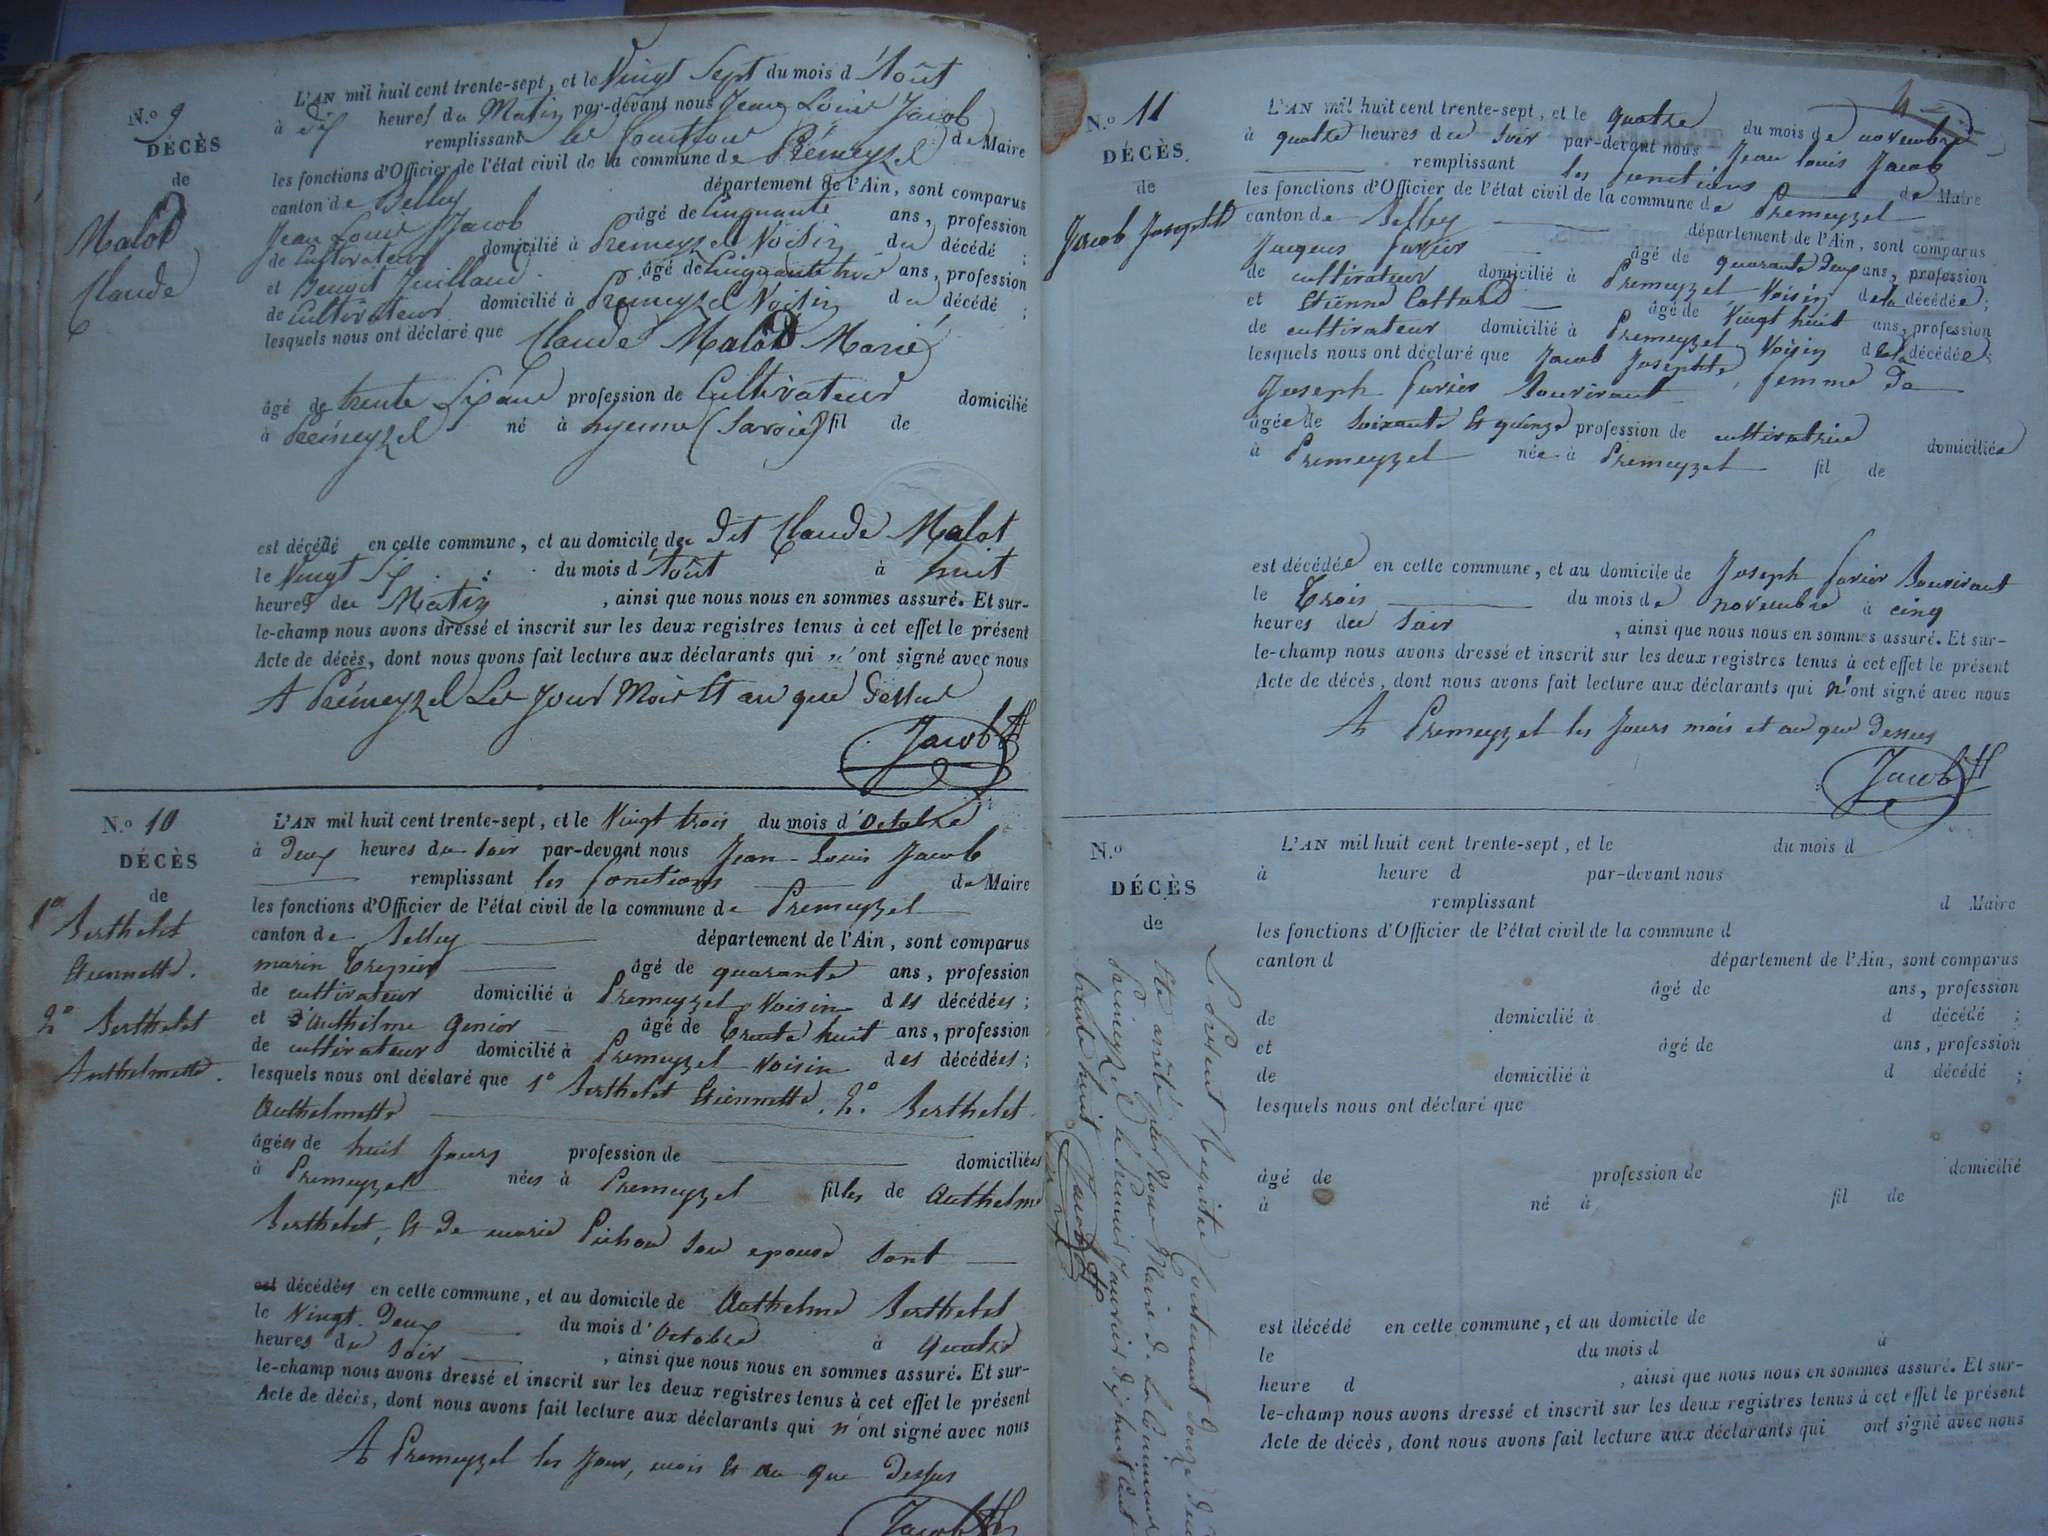 N.o 9
DÉCÈS
de
Malod
Claude
L'AN mil huit cent trente-sept, et le Vingt Sept du mois d'Août
à dix heures du Matin par-devant nous Jean Louis Jacob
remplissant les fonctions de Maire
les fonctions d'Officier de l'état civil de la commune de Prémeyzel
canton de Belley département de l'Ain, sont comparus
Jean Louis Jacob âgé de Cinquante ans, profession
de Cultivateur domicilié à Premeyzel Voisin du décédé ;
et Benoit Juilland âgé de Cinquante trois ans, profession
de Cultivateur domicilié à Premeyzel Voisin du décédé ;
lesquels nous ont déclaré que Claude Malod Marié
âgé de trente Six ans profession de Cultivateur domicilié
à Prémeyzel né à hyenne (Savoie) fil de
est décédé en cette commune, et au domicile du dit Claude Malot
le Vingt Six du mois d'Août à huit
heures du Matin, ainsi que nous nous en sommes assuré. Et sur-
le-champ nous avons dressé et inscrit sur les deux registres tenus à cet effet le présent
Acte de décès, dont nous avons fait lecture aux déclarants qui n'ont signé avec nous
A Prémeyzel Les Jour Mois Et an que Dessus
Jacob
N.o 10
DÉCÈS
de
1o Berthelet
Etiennette.
2o Berthelet
Anthelmette.
L'AN mil huit cent trente-sept, et le Vingt trois du mois d'Octobre
à Deux heures du Soir par-devant nous Jean-Louis Jacob
remplissant les fonctions de Maire
les fonctions d'Officier de l'état civil de la commune de Premeyzel
canton de Belley département de l'Ain, sont comparus
marin Trepier âgé de quarante ans, profession
de cultivateur domicilié à Premeyzel Voisin des décédées ;
et d'Anthelme Genior âgé de trente huit ans, profession
de cultivateur domicilié à Premeyzel Voisin des décédées ;
lesquels nous ont déclaré que 1o Berthelet Etiennette. 2o Berthelet
Anthelmette
âgées de huit Jours profession de domiciliées
à Premeyzel nées à Premeyzel filles de Anthelme
Berthelet, Et De marie Pichon Son epouse Sont
est décédées en cette commune, et au domicile de Anthelme Berthelet
le Vingt-Deux du mois d'Octobre à quatre
heures du Soir, ainsi que nous nous en sommes assuré. Et sur-
le-champ nous avons dressé et inscrit sur les deux registres tenus à cet effet le présent
Acte de décès, dont nous avons fait lecture aux déclarants qui n'ont signé avec nous
A Premeyzel les Jour, mois Et an que Dessus
Jacob
N.o 11
DÉCÈS
de
Jacob Josephte
4
L'AN mil huit cent trente-sept, et le quatre du mois de novembre
à quatre heures du Soir par-devant nous Jean louis Jacob
remplissant les fonctions de Maire
les fonctions d'Officier de l'état civil de la commune de Premeyzel
canton de Belley département de l'Ain, sont comparus
Jacques Favier âgé de quarante Deux ans, profession
de cultivateur domicilié à Premeyzel Voisin de la décédée ;
et Etienne Cottard âgé de Vingt huit ans, profession
de cultivateur domicilié à Premeyzel Voisin de la décédée ;
lesquels nous ont déclaré que Jacob Josephte, femme De
Joseph Favier Survivant
âgée de Soixante Et quinze profession de cultivatrice domiciliée
à Premeyzel née à Premeyzel fil de
est décédée en cette commune, et au domicile de Joseph Favier Survivant
le Trois du mois de novembre à cinq
heures du Soir, ainsi que nous nous en sommes assuré. Et sur-
le-champ nous avons dressé et inscrit sur les deux registres tenus à cet effet le présent
Acte de décès, dont nous avons fait lecture aux déclarants qui n'ont signé avec nous
A Premeyzel les Jours mois et an que Dessus
Jacob
N.o
DÉCÈS
de
Le Présent Registre Contenant Douze
Eté arrêté par Nous Maire de La Commune
Prémeyzel le premier Janvier dix huit Cent
trente huit
Jacob
L'AN mil huit cent trente-sept, et le du mois d
à heure d par-devant nous
remplissant d Maire
les fonctions d'Officier de l'état civil de la commune d
canton d département de l'Ain, sont comparus
âgé de ans, profession
de domicilié à d décédé ;
et âgé de ans, profession
de domicilié à d décédé ;
lesquels nous ont déclaré que
âgé de profession de domicilié
à né à fil de
est décédé en cette commune, et au domicile de
le du mois d à
heure d , ainsi que nous nous en sommes assuré. Et sur-
le-champ nous avons dressé et inscrit sur les deux registres tenus à cet effet le présent
Acte de décès, dont nous avons fait lecture aux déclarants qui ont signé avec nous